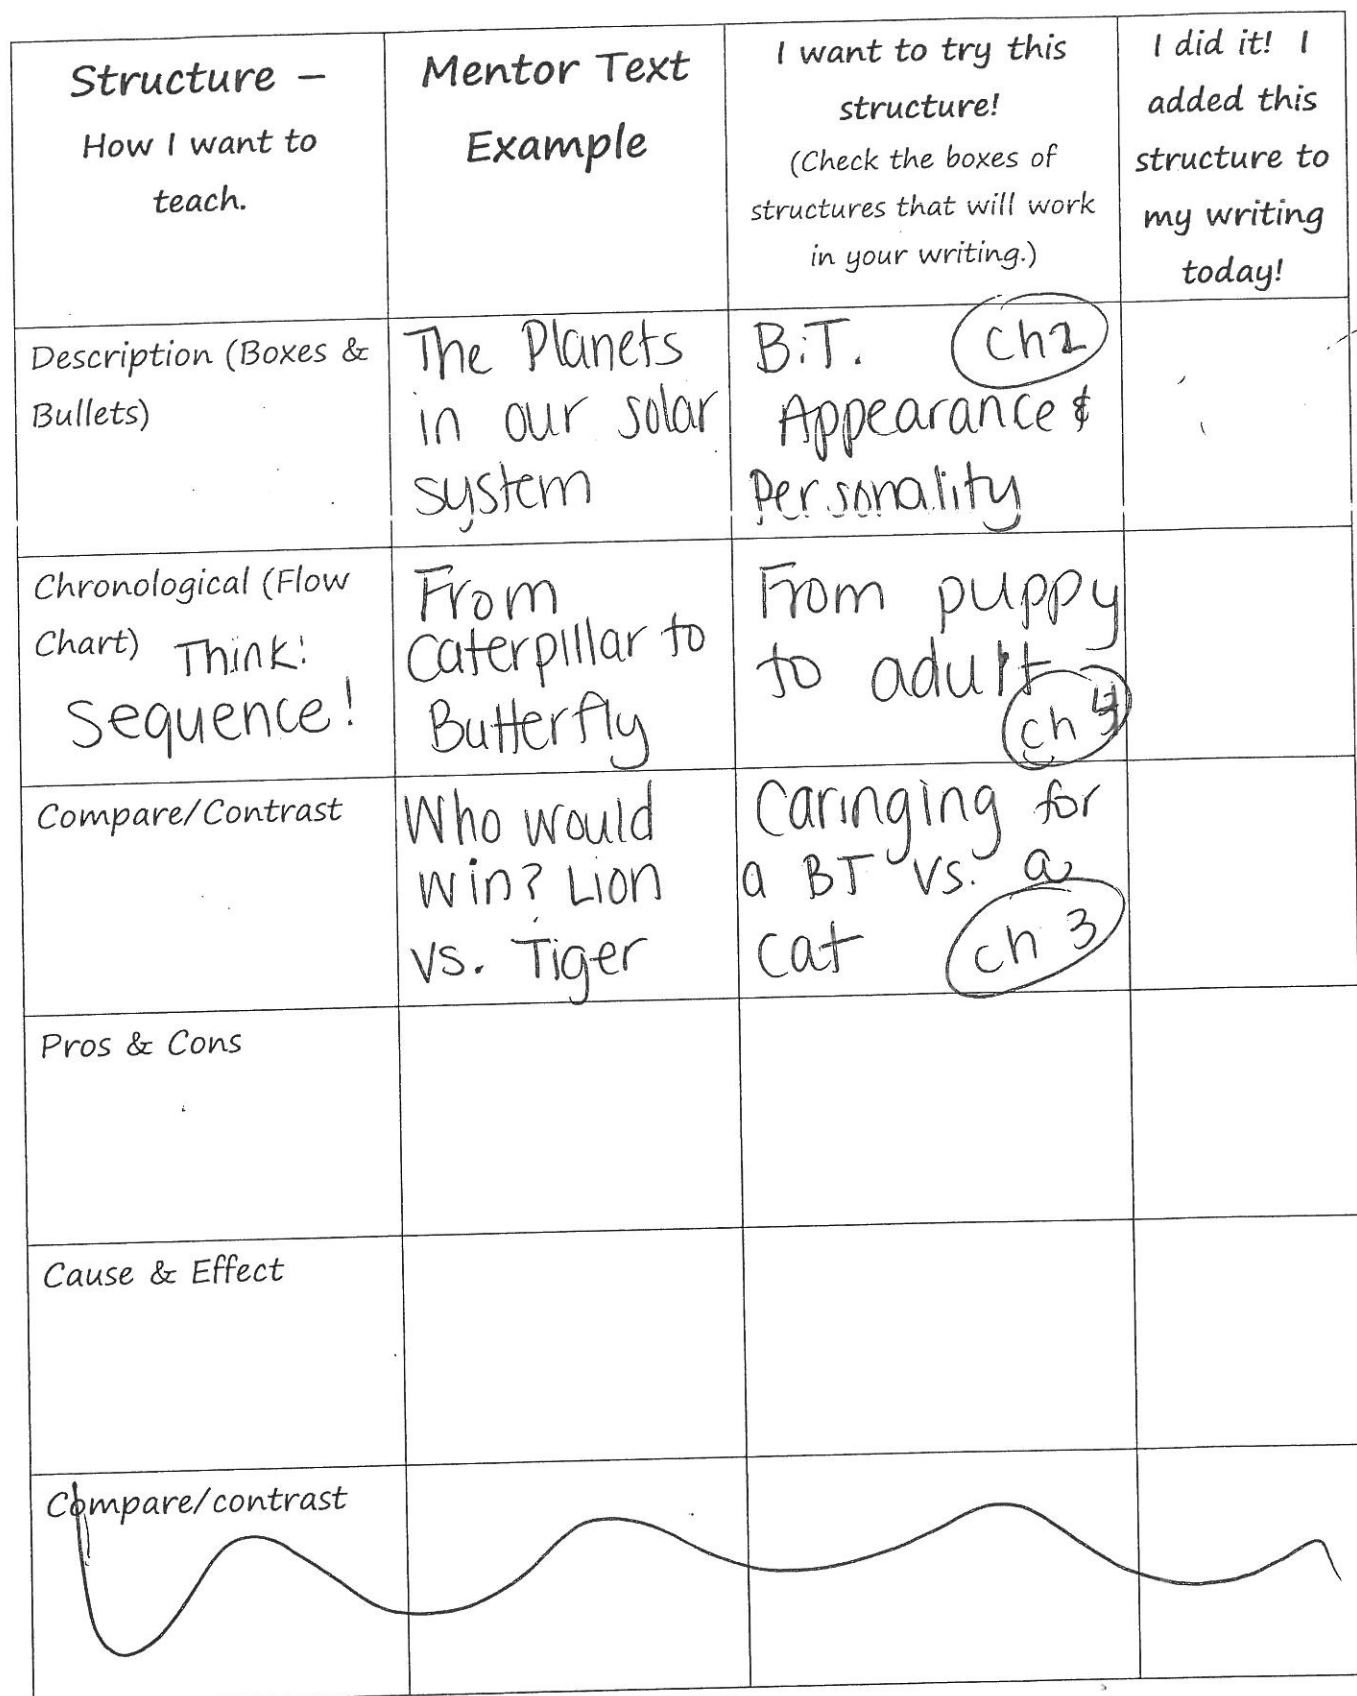 Structure –
How I want to
teach.
Mentor Text
Example
I want to try this
structure!
(Check the boxes of
structures that will work
in your writing.)
I did it! I
added this
structure to
my writing
today!
Description (Boxes &
Bullets)
The Planets
in our solar
system
B.T. Ch2
Appearance &
Personality
Chronological (Flow
Chart) Think:
Sequence!
From
Caterpillar to
Butterfly
From puppy
to adult
ch 4
Compare/Contrast
Who would
win? Lion
vs. Tiger
Caringing for
a BT vs. a
cat ch 3
Pros & Cons
Cause & Effect
Compare/contrast